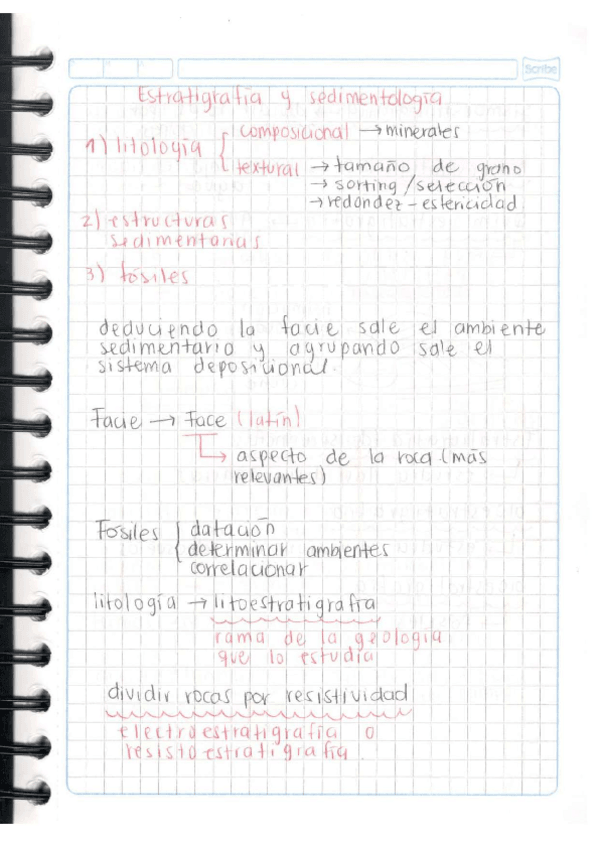 Scribe
Estratigrafía y sedimentología
1) litología { composicional → minerales
textural → tamaño de grano
→ sorting / selección
→ redondez - esfericidad
2) estructuras
sedimentarias
3) fósiles
deduciendo la facie sale el ambiente
sedimentario y agrupando sale el
sistema deposicional.
Facie → Face (latín)
aspecto de la roca (más
relevantes)
Fósiles { datación
determinar ambientes
correlacionar
litología → litoestratigrafía
rama de la geología
que lo estudia
dividir rocas por resistividad
electroestratigrafía o
resistoestratigrafía